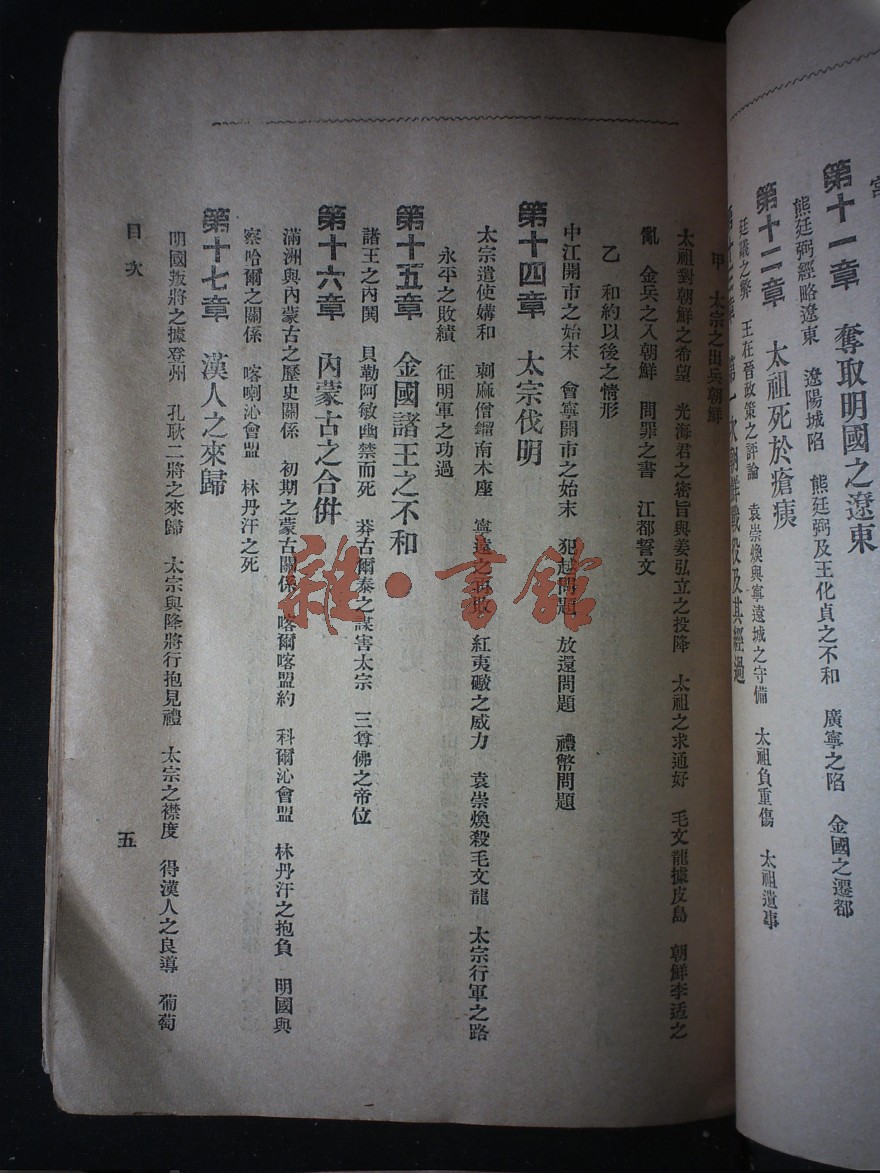 第十一章　奪取明國之遼東
熊廷弼經略遼東　遼陽城陷　熊廷弼及王化貞之不和　廣寧之陷　金國之遷都
第十二章　太祖死於瘡痍
廷議之弊　王在晉政策之評論　袁崇煥與寧遠城之守備　太祖負重傷　太祖遺事
第一次朝鮮戰役及其經過
甲　太宗之出兵朝鮮
太祖對朝鮮之希望　光海君之密旨與姜弘立之投降　太祖之求通好　毛文龍據皮島　朝鮮李适之
亂　金兵之入朝鮮　問罪之書　江都誓文
乙　和約以後之情形
中江開市之始末　會寧開市之始末　犯越問題　放還問題　禮幣問題
第十四章　太宗伐明
太宗遣使媾和　刺麻僧鎦南木座　寧遠之再敗　紅夷礮之威力　袁崇煥殺毛文龍　太宗行軍之路
永平之敗績　征明軍之功過
第十五章　金國諸王之不和
諸王之內鬨　貝勒阿敏幽禁而死　莽古爾泰之謀害太宗　三尊佛之帝位
第十六章　內蒙古之合併
滿洲與內蒙古之歷史關係　初期之蒙古關係　喀爾喀盟約　科爾沁會盟　林丹汗之抱負　明國與
察哈爾之關係　喀喇沁會盟　林丹汗之死
第十七章　漢人之來歸
明國叛將之據登州　孔耿二將之來歸　太宗與降將行抱見禮　太宗之襟度　得漢人之良導　葡萄
目次
五
雜·書館